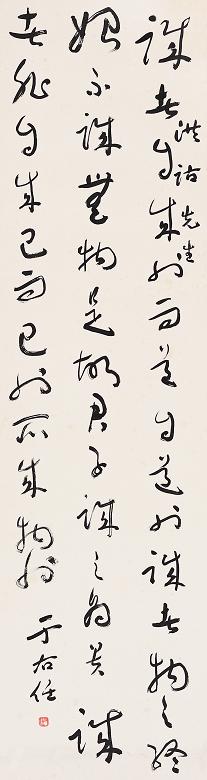 誠者自成也而道自道也誠者物之終
先生
始不誠無物是故君子誠之為貴誠
者非自成己而已也所成物也
于右任